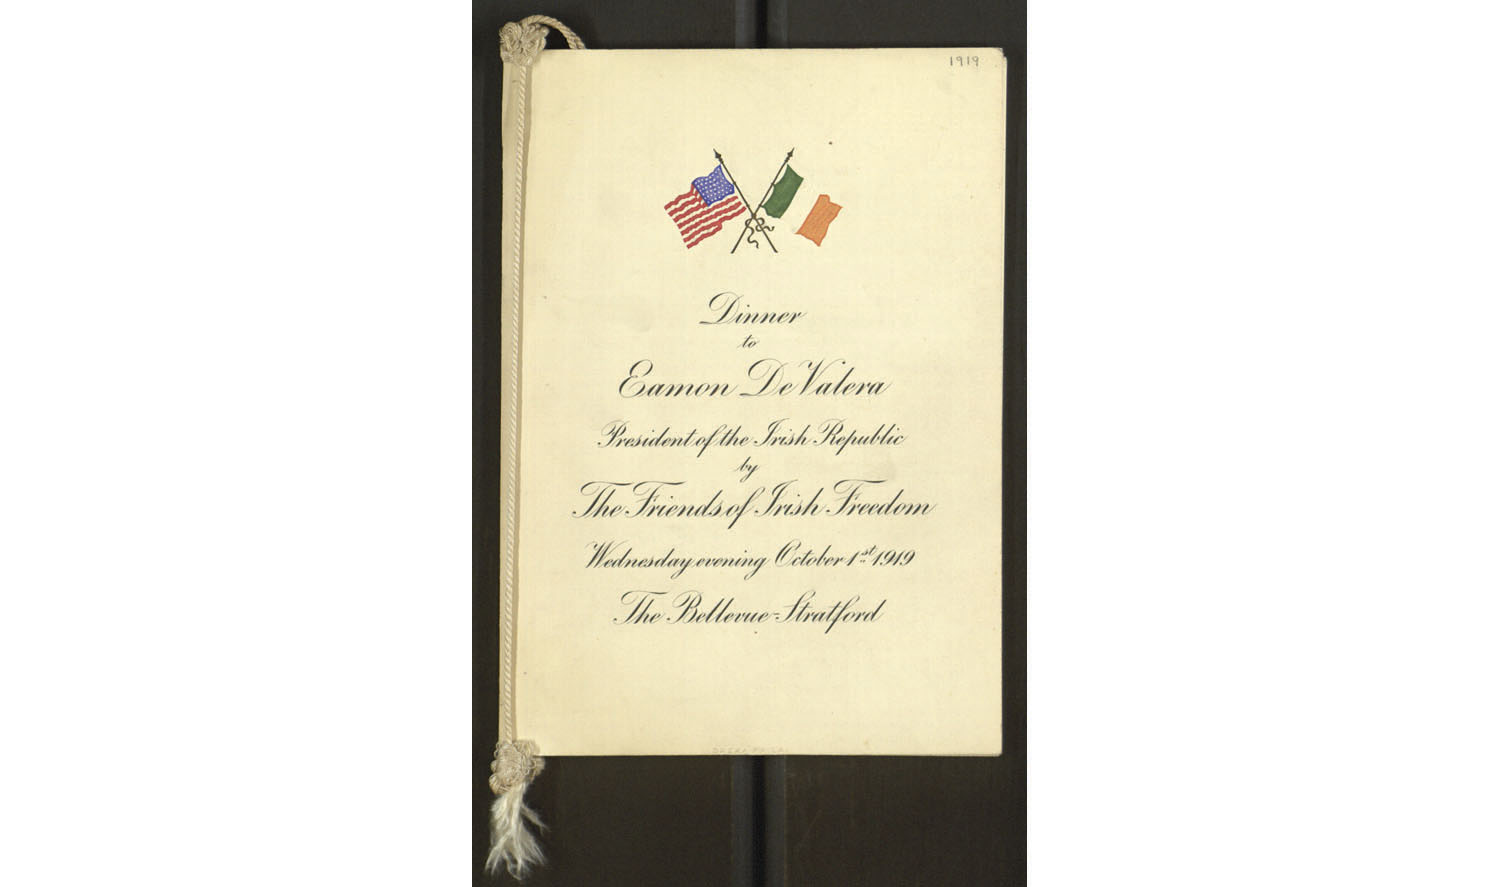 1919
Dinner
to
Eamon De Valera
President of the Irish Republic
by
The Friends of Irish Freedom
Wednesday evening October 1st 1919
The Bellevue-Stratford